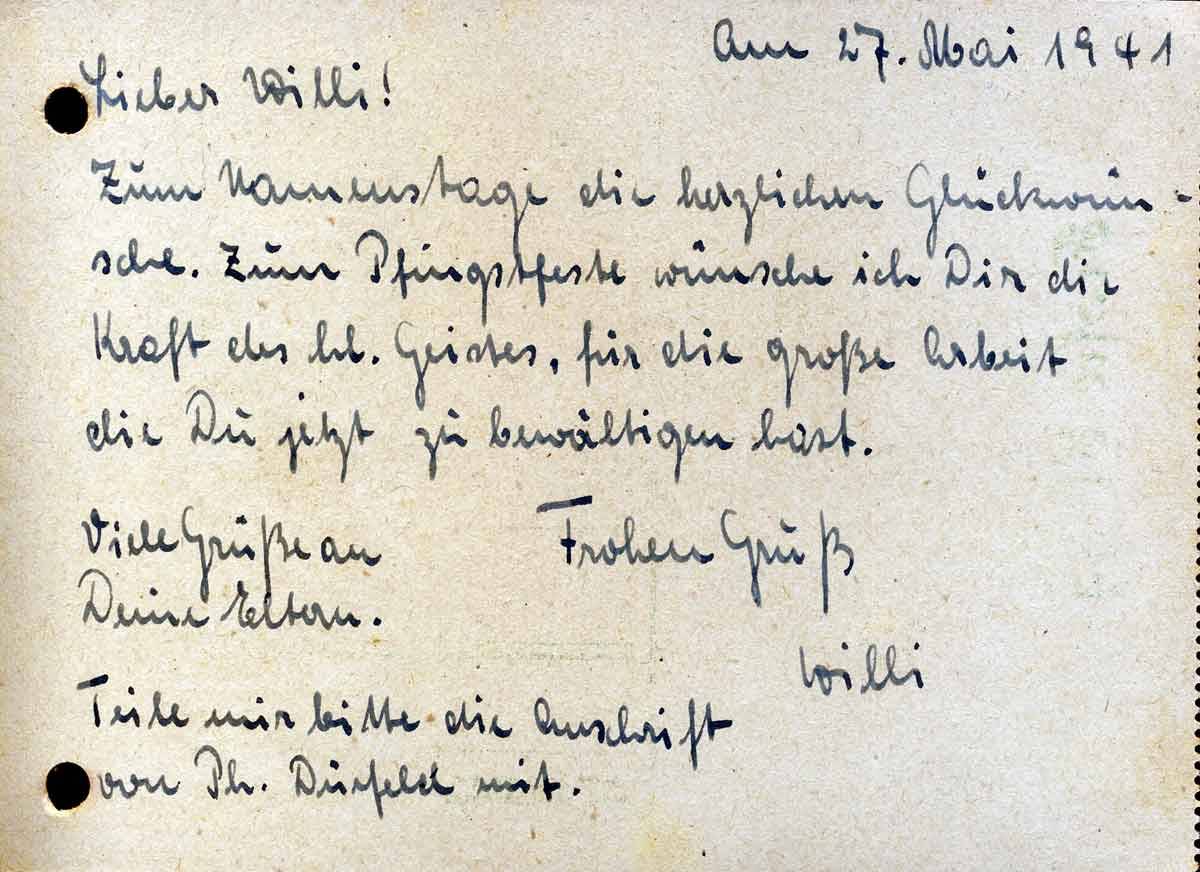 Am 27. Mai 1941
Lieber Willi!
Zum Namenstage die herzlichen Glückwün-
sche. Zum Pfingstfeste wünsche ich Dir die
Kraft des hl. Geistes, für die große Arbeit
die Du jetzt zu bewältigen hast.
Viele Grüße an
Deine Eltern.
Frohen Gruß
Willi
Teile mir bitte die Anschrift
von Ph. mit.